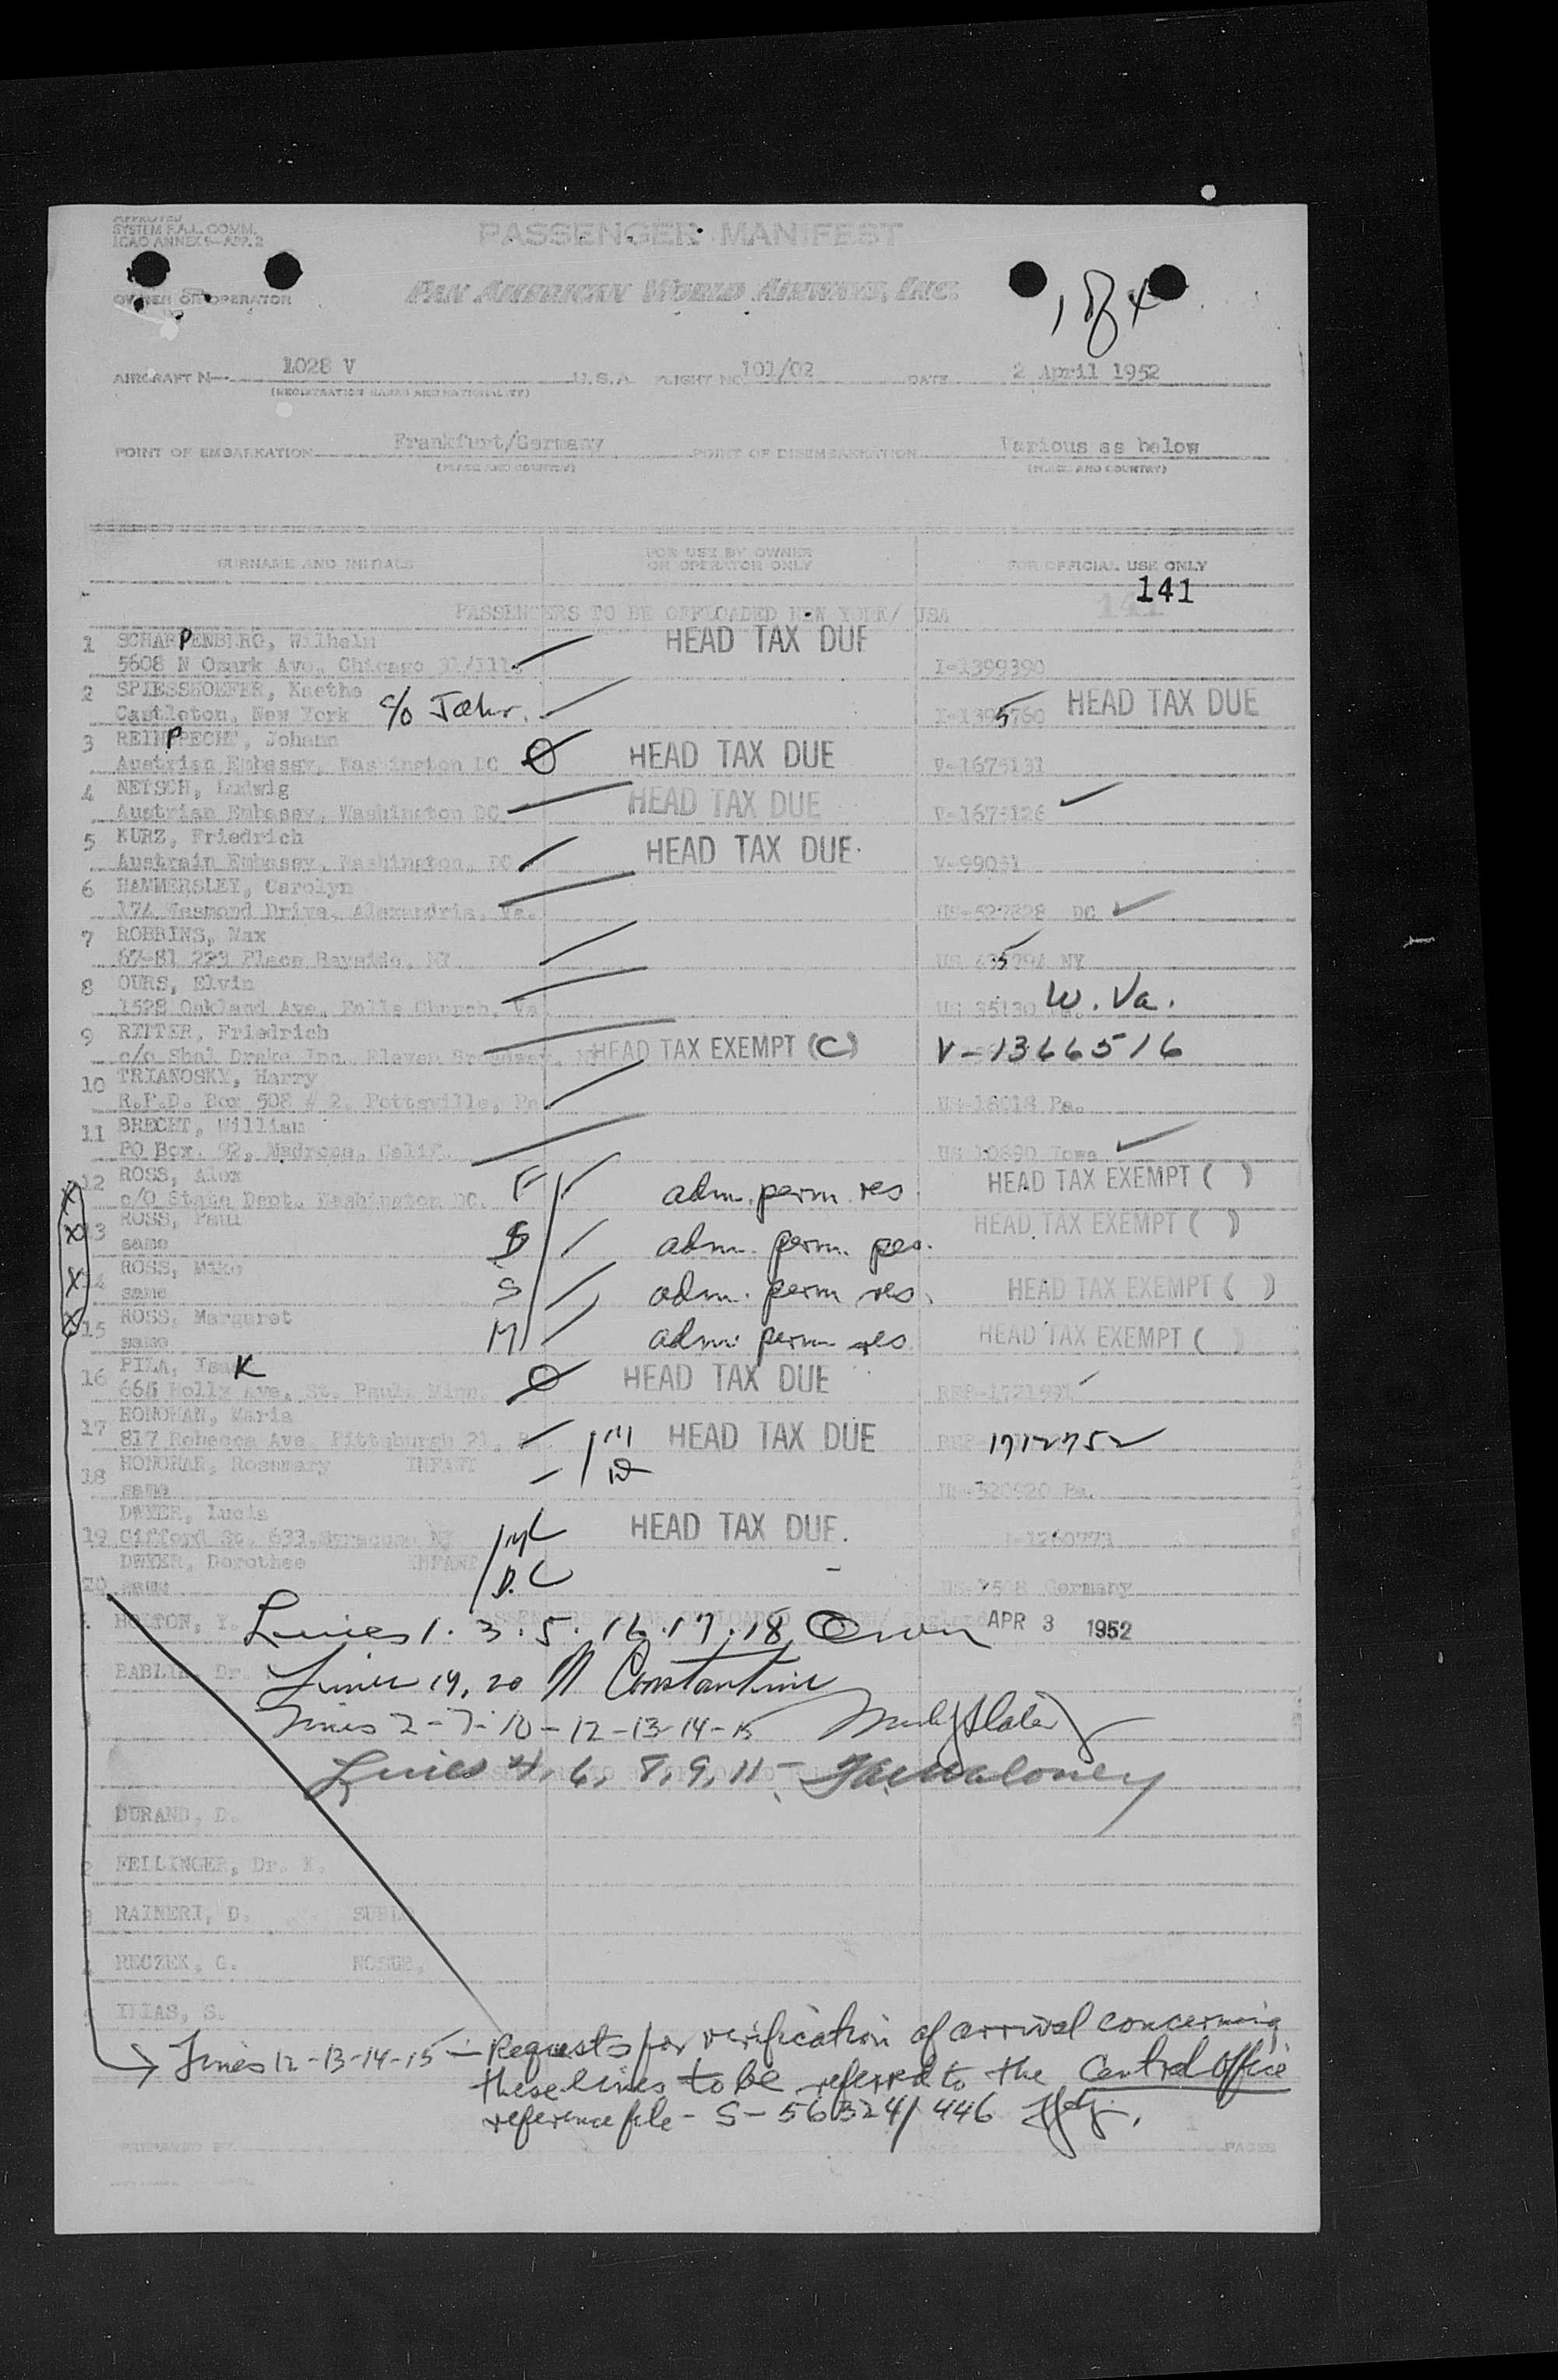 APPROVED
SYSTEM F.A.L. COMM.
ICAO ANNEX 9—APP. 2
PASSENGER MANIFEST
OWNER OR OPERATOR
PAN AMERICAN WORLD AIRWAYS, INC.
AIRCRAFT N— 1028 V U.S.A. FLIGHT NO. 101/02 DATE 2 April 1952
(REGISTRATION MARKS AND NATIONALITY)
POINT OF EMBARKATION Frankfurt/Germany POINT OF DISEMBARKATION Various as below
(PLACE AND COUNTRY) (PLACE AND COUNTRY)
SURNAME AND INITIALS FOR USE BY OWNER OR OPERATOR ONLY FOR OFFICIAL USE ONLY
141
PASSENGERS TO BE OFFLOADED NEW YORK/ USA
1 SCHARPENBERG, Wilhelm HEAD TAX DUE
5608 N Ozark Ave, Chicago 31/Ill. I-1399390
2 SPIESSHOEFER, Kaethe HEAD TAX DUE
Castleton, New York c/o Jahr.
3 REINPRECHT, Johann HEAD TAX DUE
Austrian Embassy, Washington DC V-1675131
4 NETSCH, Ludwig HEAD TAX DUE
Austrian Embassy, Washington DC V-1675126
5 KURZ, Friedrich HEAD TAX DUE
Austrain Embassy, Washington, DC V-99051
6 HAMMERSLEY, Carolyn
174 Wesmond Drive, Alexandria, Va. US-527828 DC
7 ROBBINS, Max
67-81 223 Place Bayside, NY
8 OURS, Elvin
1528 Oakland Ave, Falls Church, Va US 35130 W. Va.
9 REITER, Friedrich
c/o Shal Drake Inc. Eleven Broadway, HEAD TAX EXEMPT (C) V-1366516
10 TRIANOSKY, Harry
R.F.D. Box 508 # 2, Pottsville, Pa US-16018 Pa.
11 BRECHT, William
PO Box. 92, Madrone, Calif. US 10890 Iowa
12 ROSS, Alex HEAD TAX EXEMPT ( )
c/o State Dept. Washington DC. F adm. perm res
13 ROSS, Paul HEAD TAX EXEMPT ( )
same adm. perm. res.
14 ROSS, Mike HEAD TAX EXEMPT ( )
same S adm. perm res.
15 ROSS, Margaret HEAD TAX EXEMPT ( )
same M adm. perm res
16 PILA, Isak HEAD TAX DUE
665 Holly Ave, St. Paul, Minn.
17 HONOHAN, Maria HEAD TAX DUE
817 Rebecca Ave Pittsburgh 21, Pa 1712752
18 HONOHAN, Rosemary INFANT
same US-320920 Pa.
DWYER, Lucia HEAD TAX DUE.
19 Gifford St. 633, Syracuse NY I-1260773
DWYER, Dorothee INFANT
20 same US-2508 Germany
HOLTON, Y. APR 3 1952
Lines 1. 3. 5. 16. 17. 18
BABLIK, Dr.
Lines 19, 20 M Constantine
Lines 2-7-10-12-13-14-15
Lines 4, 6, 8, 9, 11 - Maloney
DURAND, D.
2 FELLINGER, Dr. K.
3 RAINERI, D.
4 RECZEK, G. NOSUB.
ILIAS, S.
Lines 12-13-14-15 — Requests for verification of arrival concerning
these lines to be referred to the Central Office
reference file - S-56324/446
PREPARED BY PAGES